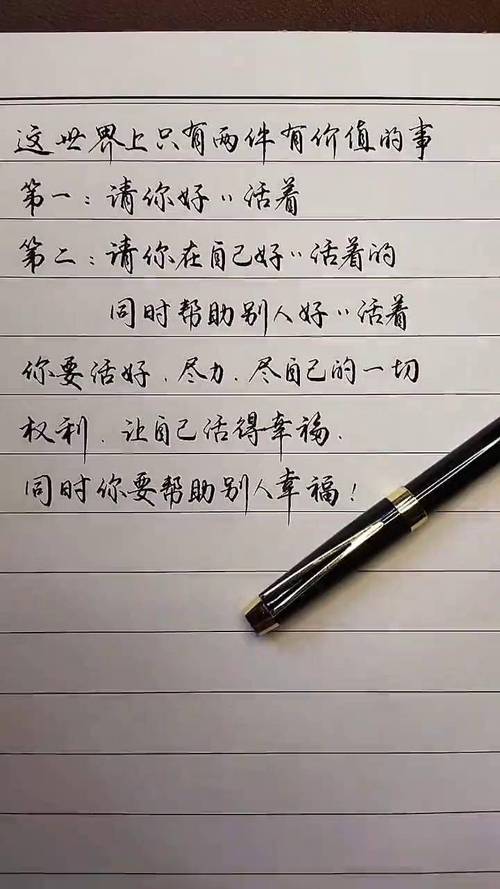 这世界上只有两件有价值的事
第一：请你好〃活着
第二：请你在自己好〃活着的
同时帮助别人好〃活着
你要活好、尽力、尽自己的一切
权利、让自己活得幸福、
同时你要帮助别人幸福！